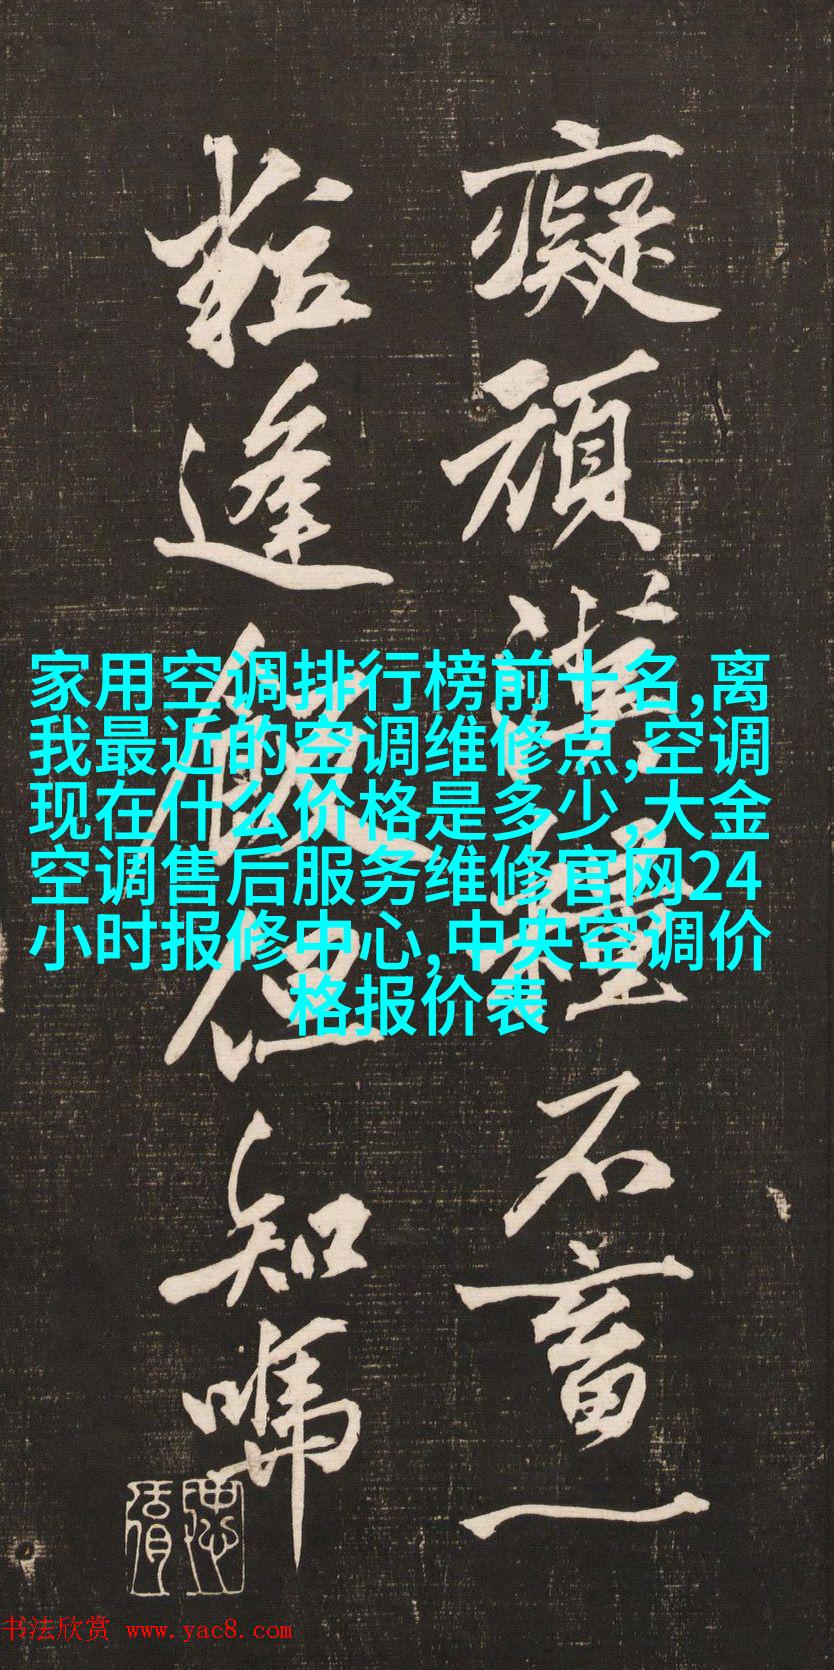 癡頑漢糧不畜一
粒逢飯但知
家用空调排行榜前十名,离
我最近的空调维修点,空调
现在什么价格是多少,大金
空调售后服务维修官网24
小时报修中心,中央空调价
格报价表
书法欣赏 www.yac8.com